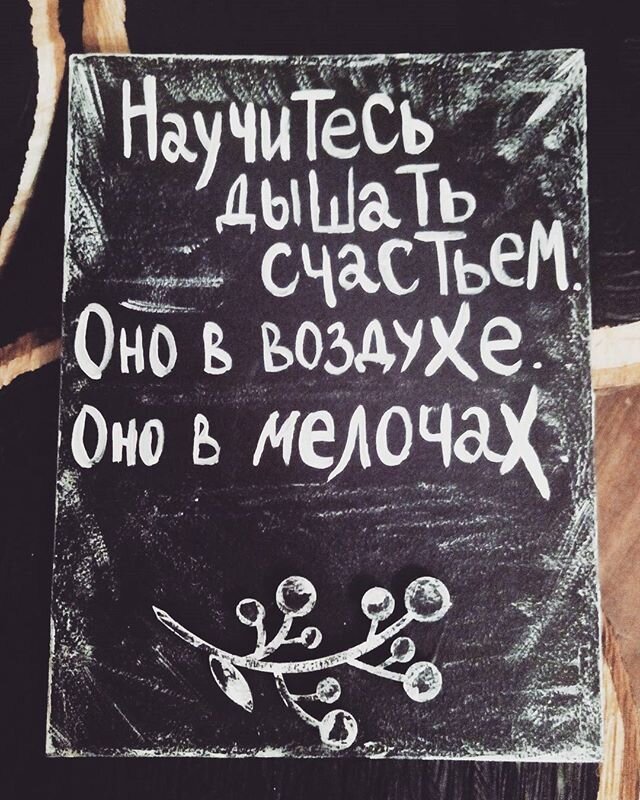 Научитесь
дышать
счастьем.
Оно в воздухе.
Оно в мелочах